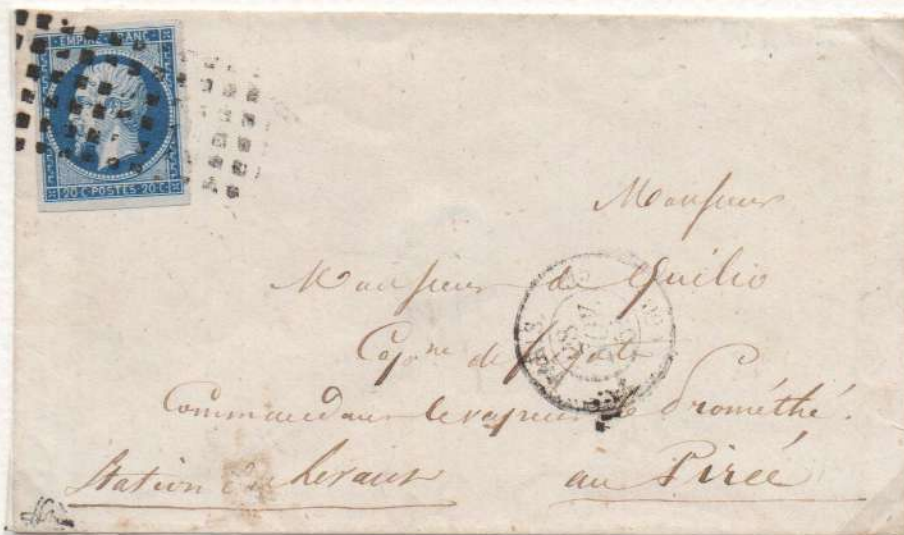 EMPIRE FRANC
20 C POSTES 20 C
Monsieur
Monsieur du Quilio
Cap.ne de frégate
Commandant le vapeur le Prométhé.
Station du Levant au Pirée
PARIS